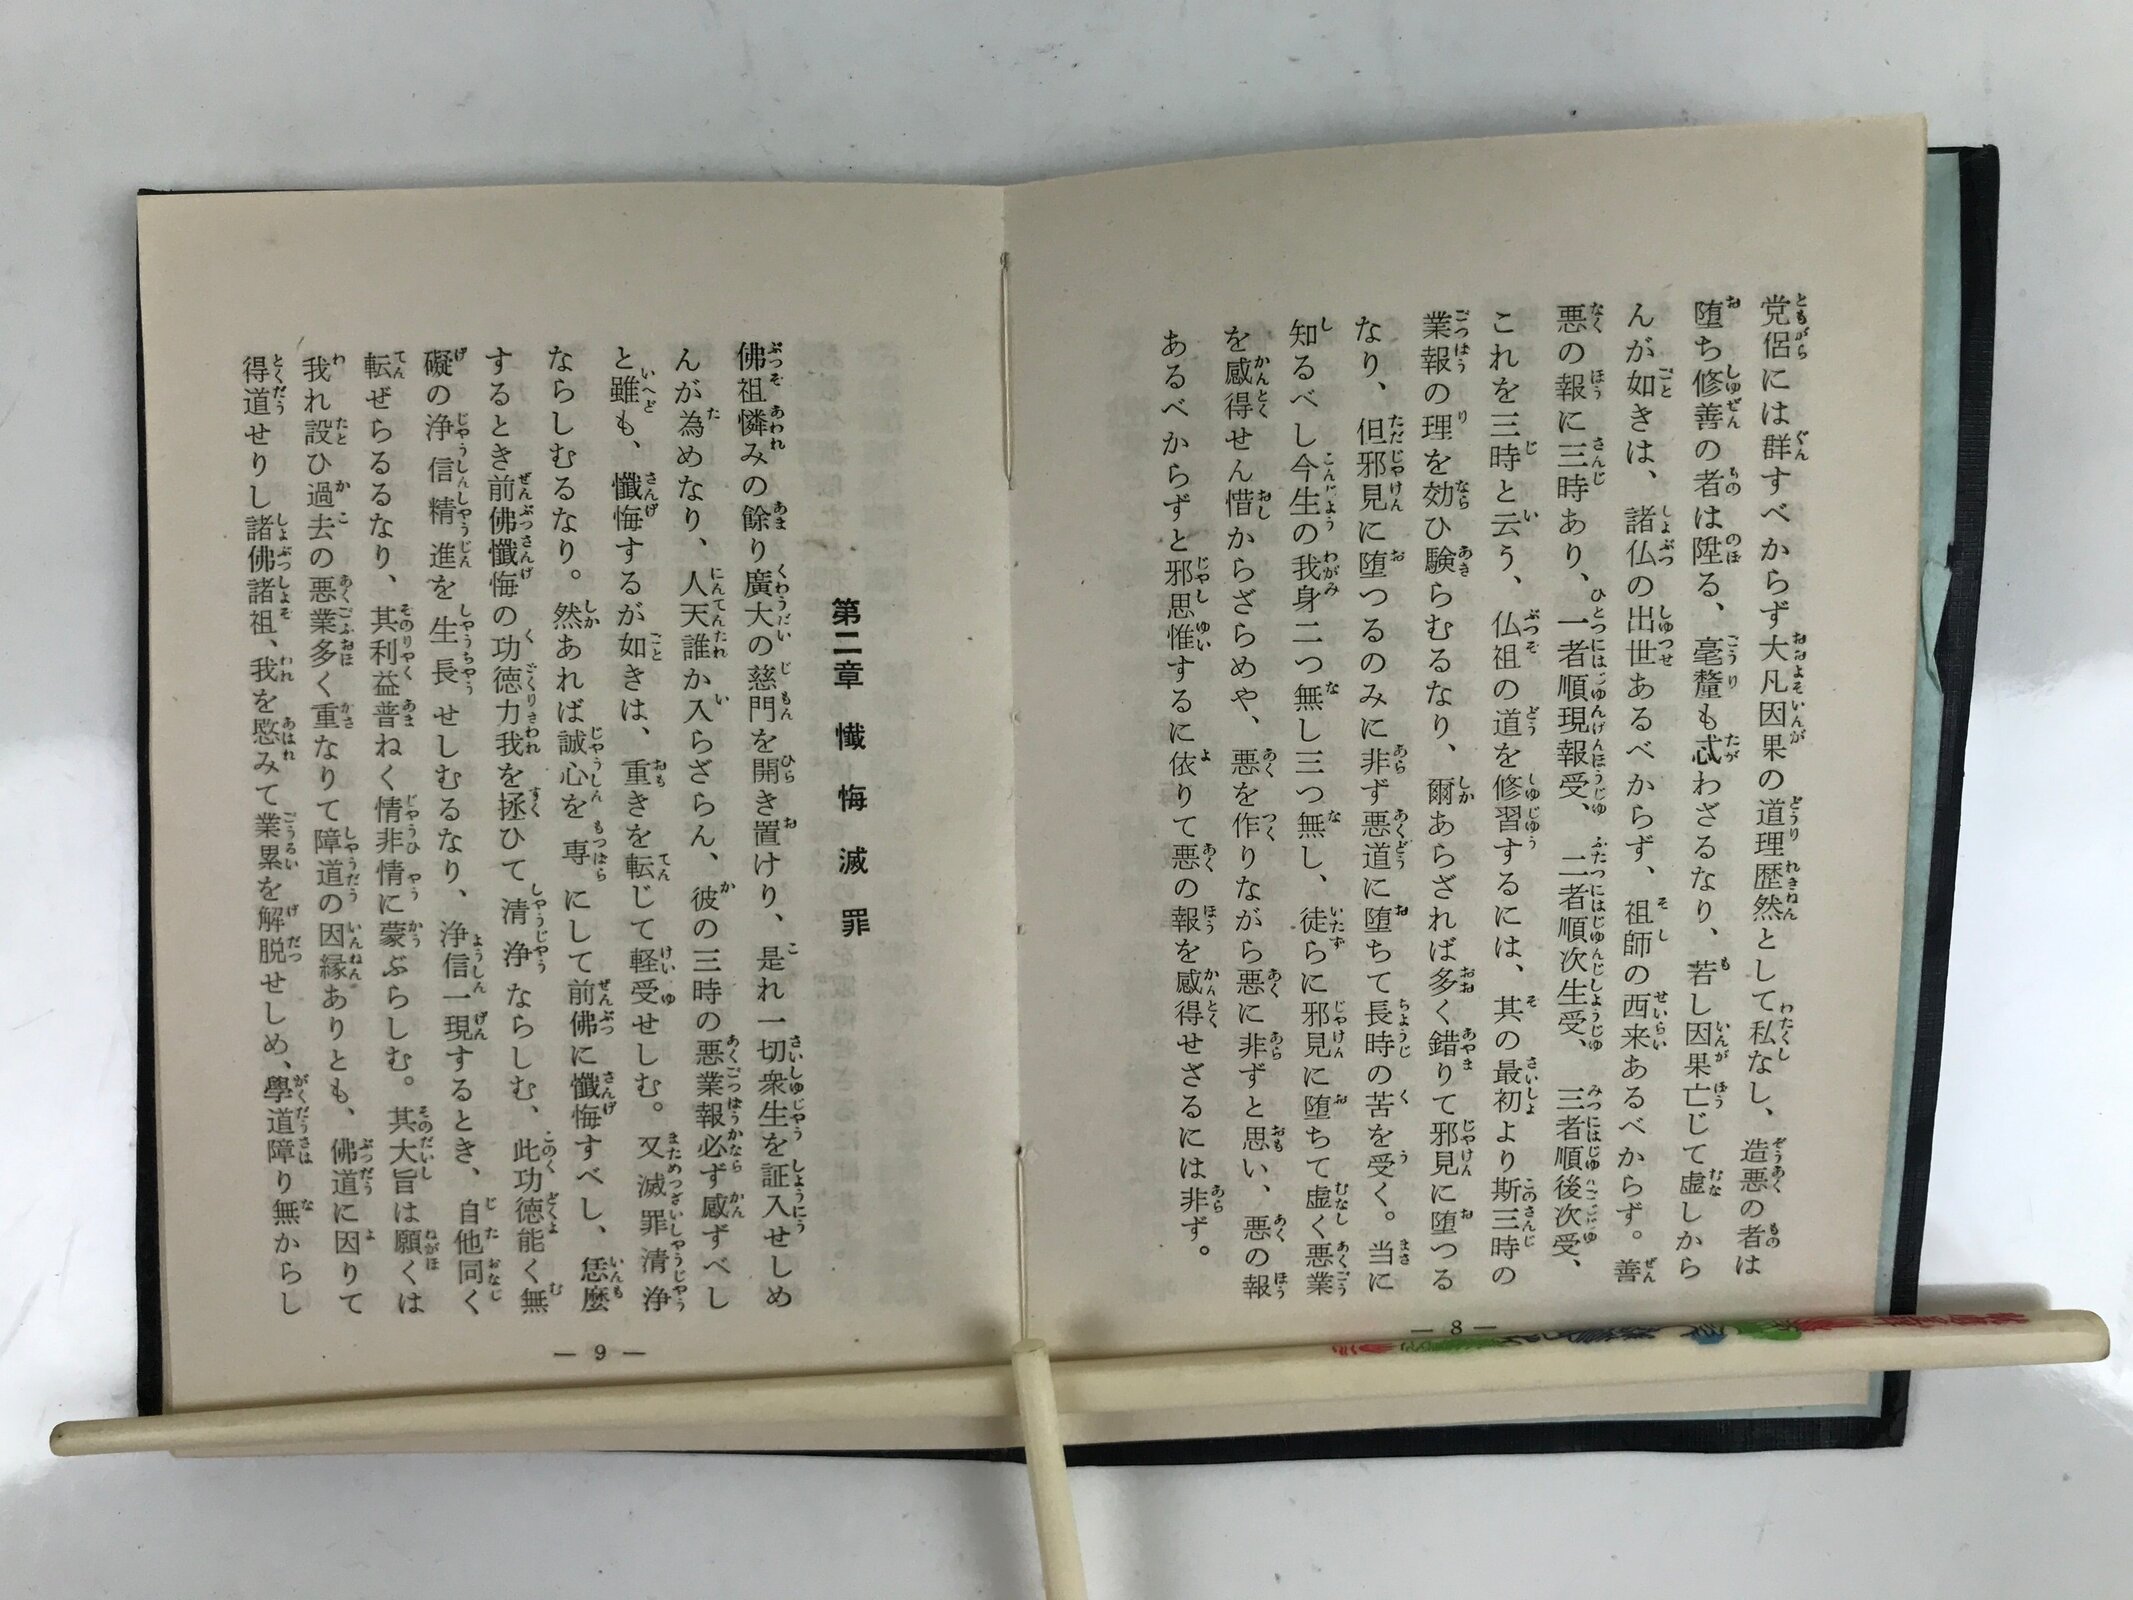 党侶には群すべからず大凡因果の道理歴然として私なし、造悪の者は
堕ち修善の者は陞る、毫釐も忒わざるなり、若し因果亡じて虚しから
んが如きは、諸仏の出世あるべからず、祖師の西来あるべからず。善
悪の報に三時あり、一者順現報受、二者順次生受、三者順後次受、
これを三時と云う、仏祖の道を修習するには、其の最初より斯三時の
業報の理を効ひ験らむるなり、爾あらざれば多く錯りて邪見に堕つる
なり、但邪見に堕つるのみに非ず悪道に堕ちて長時の苦を受く。当に
知るべし今生の我身二つ無し三つ無し、徒らに邪見に堕ちて虚く悪業
を感得せん惜からざらめや、悪を作りながら悪に非ずと思い、悪の報
あるべからずと邪思惟するに依りて悪の報を感得せざるには非ず。
— 8 —
第二章 懺悔滅罪
佛祖憐みの餘り廣大の慈門を開き置けり、是れ一切衆生を証入せしめ
んが為めなり、人天誰か入らざらん、彼の三時の悪業報必ず感ずべし
と雖も、懺悔するが如きは、重きを転じて軽受せしむ。又滅罪清浄
ならしむるなり。然あれば誠心を専にして前佛に懺悔すべし、恁麼
するとき前佛懺悔の功徳力我を拯ひて清浄ならしむ、此功徳能く無
礙の浄信精進を生長せしむるなり、浄信一現するとき、自他同く
転ぜらるるなり、其利益普ねく情非情に蒙ぶらしむ。其大旨は願くは
我れ設ひ過去の悪業多く重なりて障道の因縁ありとも、佛道に因りて
得道せりし諸佛諸祖、我を愍みて業累を解脱せしめ、學道障り無からし
— 9 —